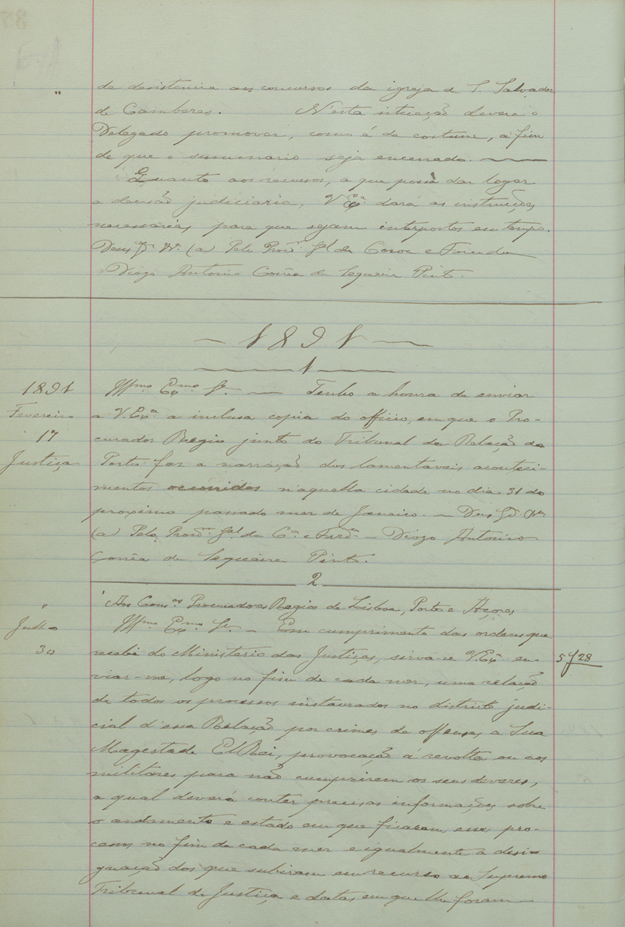 de desistencia aos concursos da igreja de S. Salvador
" de Cambeses. Nesta situação deverá o
Delegado promover, como é de costume, a fim
de que o summario seja encerrado.
Quanto aos recursos, a que possa dar logar
a decisão judiciaria, V Exª dará as instruções
necessarias para que sejam interpostos em tempo.
Deus Gde Vª (a) Pelo Procor Gal da Coroa e Fazenda
Diogo Antonio Corrêa de Sequeira Pinto.
1891
1
1891 Illmo Exmo Sr. — Tenho a honra de enviar
Fevereiro a V. Exª a inclusa copia do officio, em que o Pro-
17 curador Regio junto do Tribunal da Relação do
Justiça Porto faz a narração dos lamentaveis aconteci-
mentos occorridos n'aquella cidade no dia 31 do
proximo passado mez de Janeiro. — Deus Gde Vª
(a) Pelo Procor Gal da Cª e Fazª — Diogo Antonio
Corrêa de Sequeira Pinto.
2
" Aos Consos Procuradores Regios de Lisboa, Porto e Açores
Julho Illmo Exmo Sr. — Em cumprimento das ordens que
30 recebi do Ministerio das Justiças, sirva-se V Exª en- 5 f 28
viar-me, logo no fim de cada mez, uma relação
de todos os processos instaurados no districto judi-
cial d'essa Relação por crimes de offensas a Sua
Magestade El Rei, provocação á revolta ou aos
militares para não cumprirem os seus deveres,
a qual deverá conter precisas informações sobre
o andamento e estado em que ficaram esses pro-
cessos no fim de cada mez e igualmente a desi-
gnação dos que subiram em recurso ao Supremo
Tribunal de Justiça e datas em que lhe foram